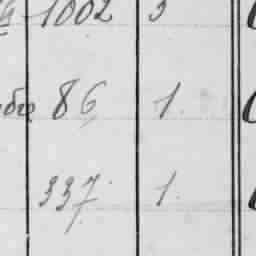 1002 3
86 1.
337. 1.